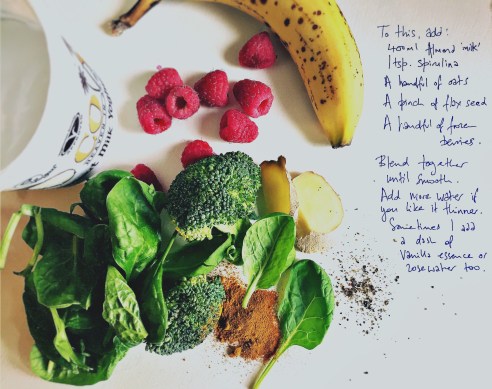 To this, add:
400ml Almond 'milk'
1 tsp. spirulina
A handful of oats
A pinch of flax seed
A handful of frozen
berries.
Blend together
until smooth.
Add more water if
you like it thinner.
Sometimes I add
a dash of
Vanilla essence or
rosewater too.